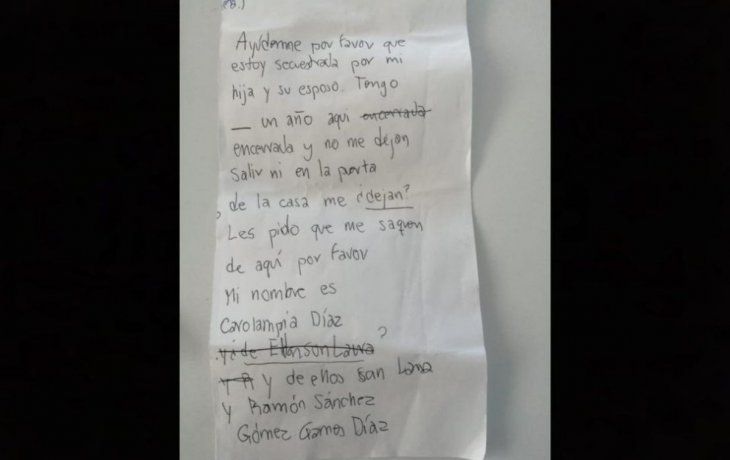 Ayúdenme por favor que
estoy secuestrada por mi
hija y su esposo. Tengo
_ un año aquí encerrada
encerrada y no me dejan
Salir ni en la porta
de la casa me ¿dejan?
Les pido que me saquen
de aquí por favor
Mi nombre es
Carolampia Díaz
de Ellos son Laura ?
y de ellos son Lama
y Ramón Sánchez
Gómez Gomes Díaz